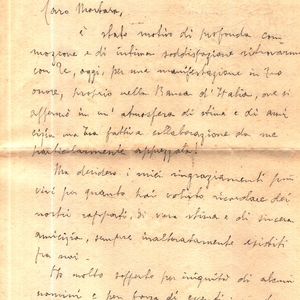 Caro Mortara,
è stato motivo di profonda com
mozione e di intima soddisfazione ritrovarmi
con Te, oggi, per una manifestazione in Tuo
onore, proprio nella Banca d'Italia, ove si
affermò in un' atmosfera di stima e di ami
cizia una Tua fattiva collaborazione da me
particolarmente apprezzata!
Ma desidero i miei ringraziamenti più
vivi per quanto hai voluto ricordare dei
nostri rapporti, di vera stima e di sincera
amicizia, sempre inalteratamente esistiti
fra noi -
Ho molto sofferto per iniquità di alcuni
uomini e per